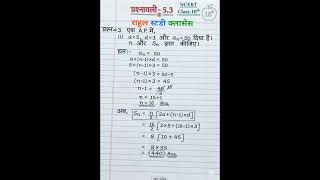 प्रश्नावली - 5.3
NCERT
Class-10th
राहुल स्टडी क्लासेस
प्रश्न:-3 एक A.P. में,
(i) a=5, d=3 और an=50 दिया है।
n और Sn ज्ञात कीजिए।
हल:- an = 50
a+(n-1)×d = 50
5+(n-1)×3 = 50
(n-1)×3 = 50-5
(n-1)×3 = 45
n-1 = 45 15
n = 15+1
n = 16 Ans
अतः Sn = n/2 [2a+(n-1)×d]
= 16/2 [2×5+(16-1)×3]
= 8 [10+45]
= 8×55
= 440 Ans